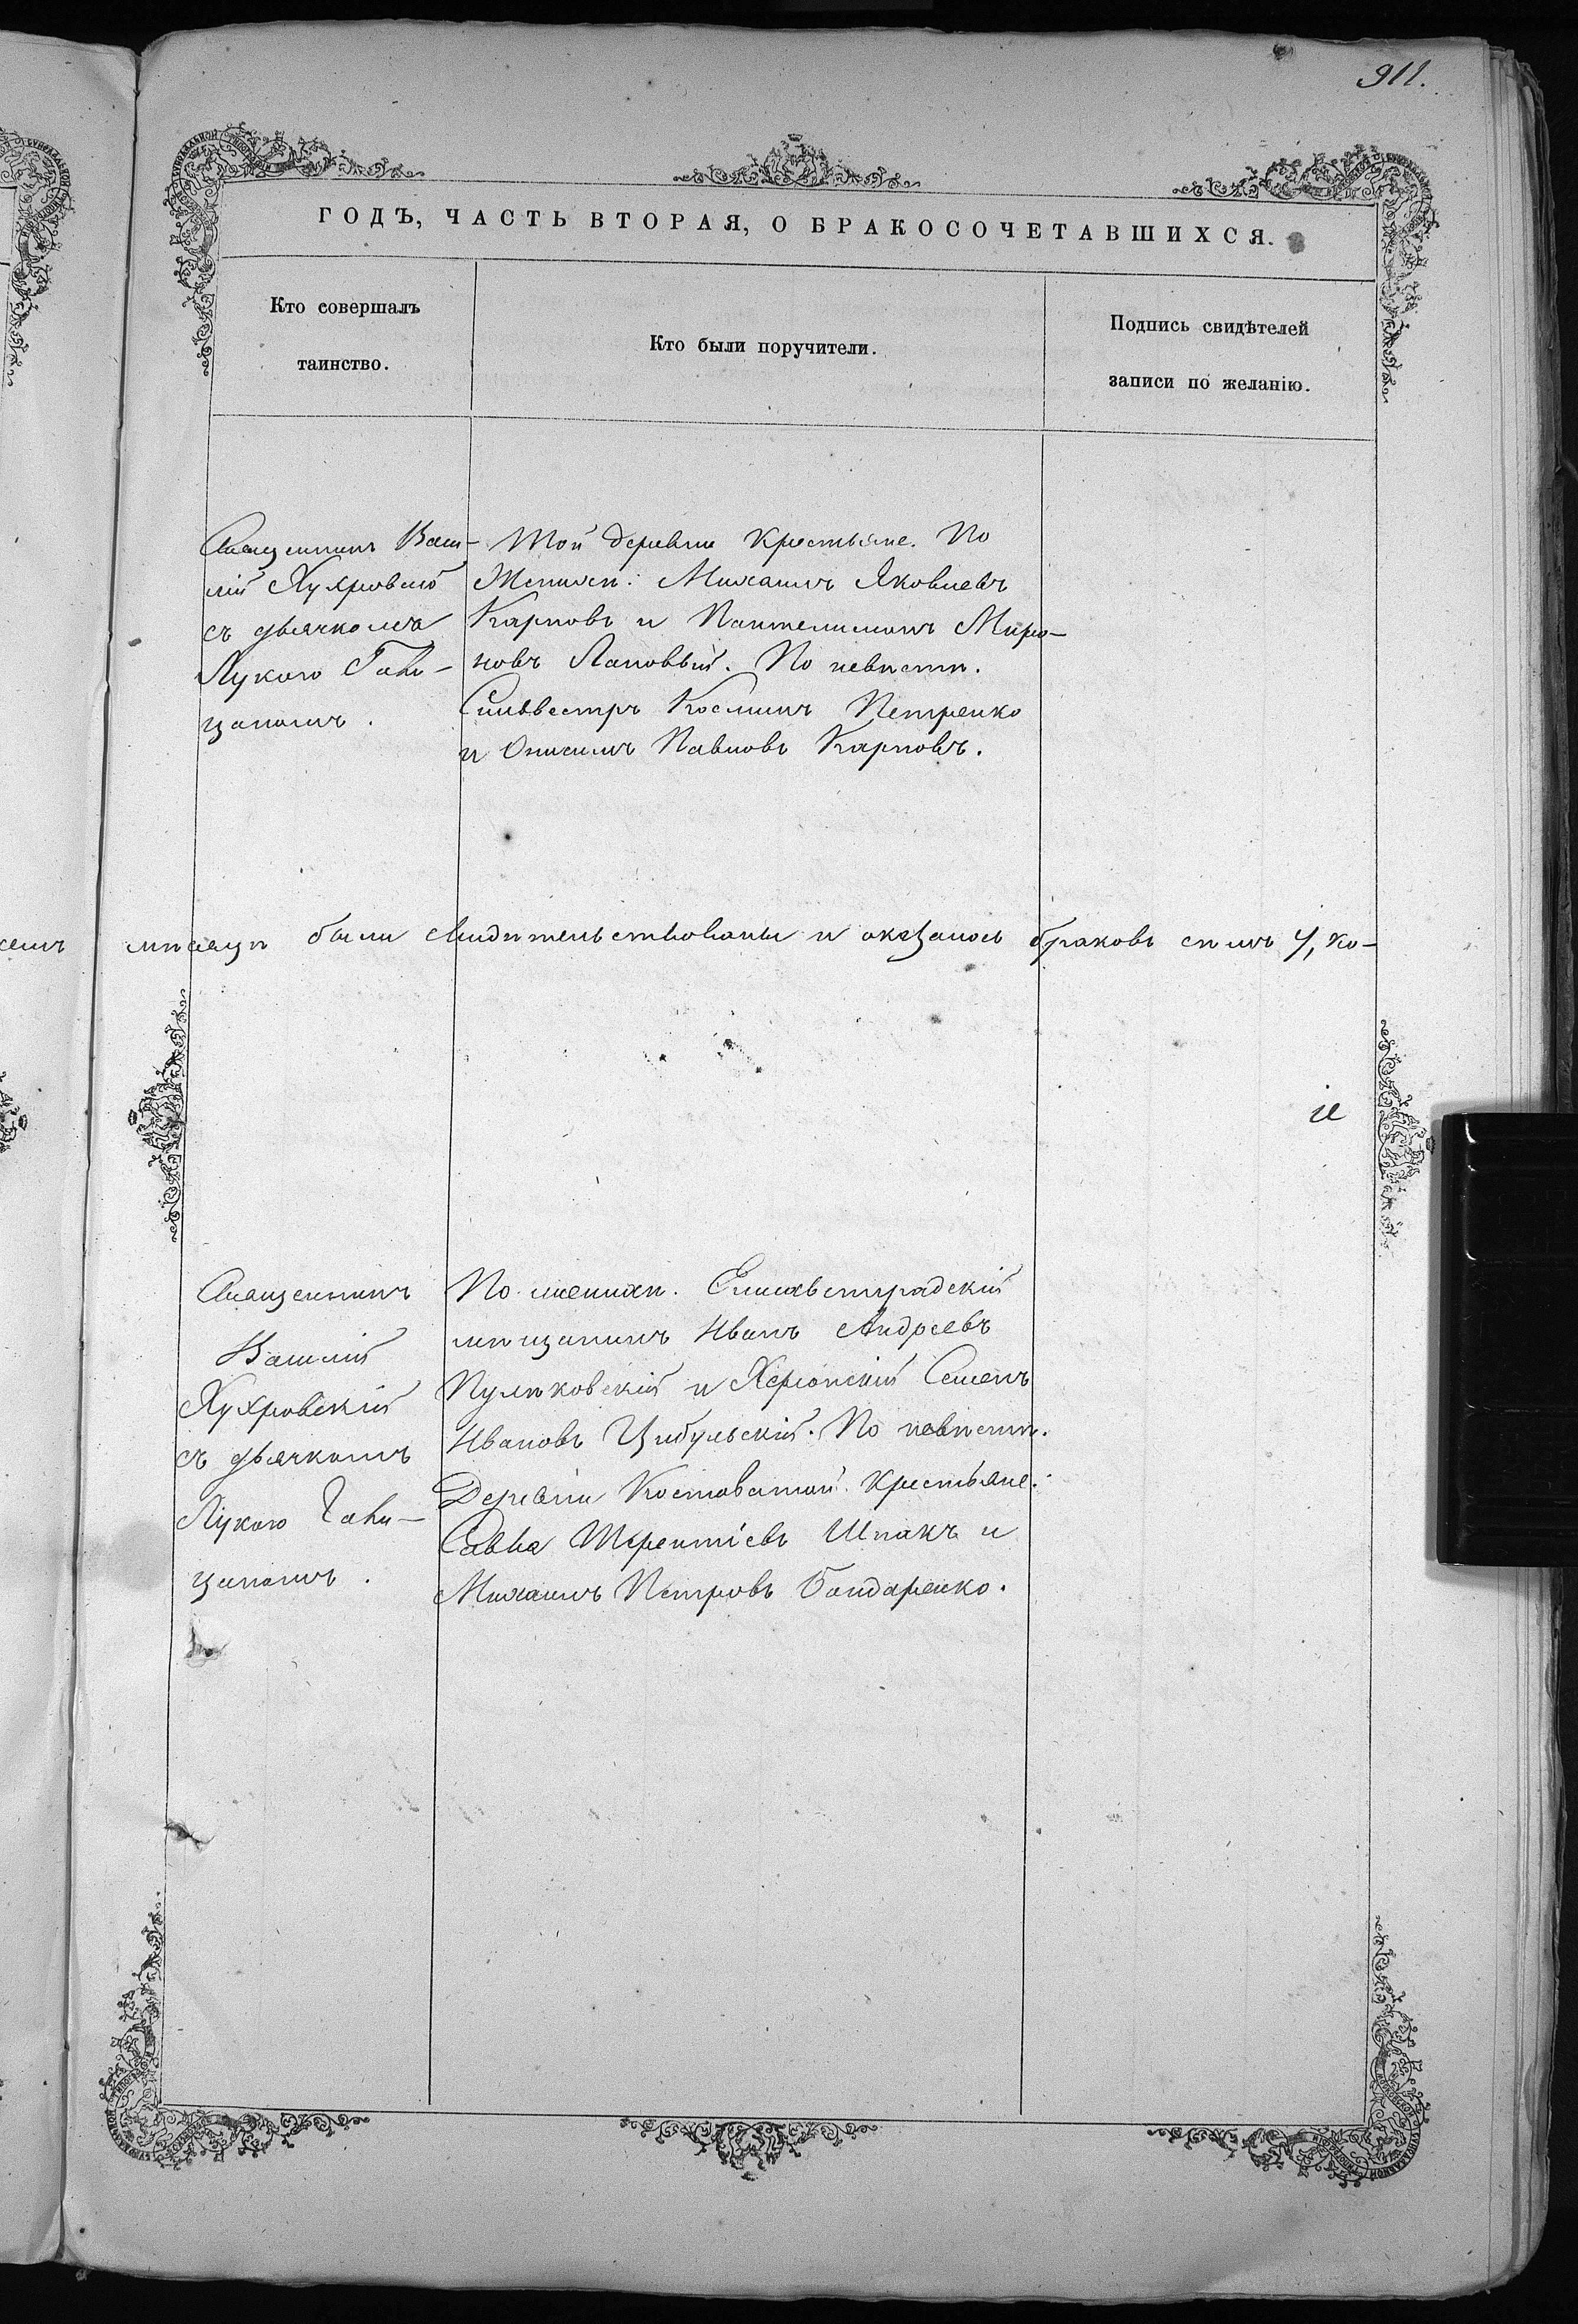 911.
ГОДЪ, ЧАСТЬ ВТОРАЯ, О БРАКОСОЧЕТАВШИХСЯ.
Кто совершалъ
таинство.
Кто были поручители.
Подпись свидѣтелей
записи по желанію.
Священникъ Васи-
лій Хухровскій
съ дьячкомъ
Лукою Гави-
Той деревни крестьяне. По
женихѣ: Михаилъ Яковлевъ
Карповъ и Пантелимонъ Миро-
новъ Лановый. По невѣстѣ.
Сильвестръ Косминъ Петренко
и Онисимъ Павловъ Карповъ.
мѣсяцѣ были свидѣтельствованы и оказалось браковъ симъ 4, ко-
Священникъ
Василій
Хухровскій
съ дьячкомъ
Лукою Гави-
По женихѣ. Елисаветградскій
мѣщанинъ Иванъ Андреевъ
Пульковскій и Херсонскій Семенъ
Ивановъ Цибульскій. По невѣстѣ.
Деревни Костоватой крестьяне:
Савва Терентіевъ Шпакъ и
Михаилъ Петровъ Бондаренко.